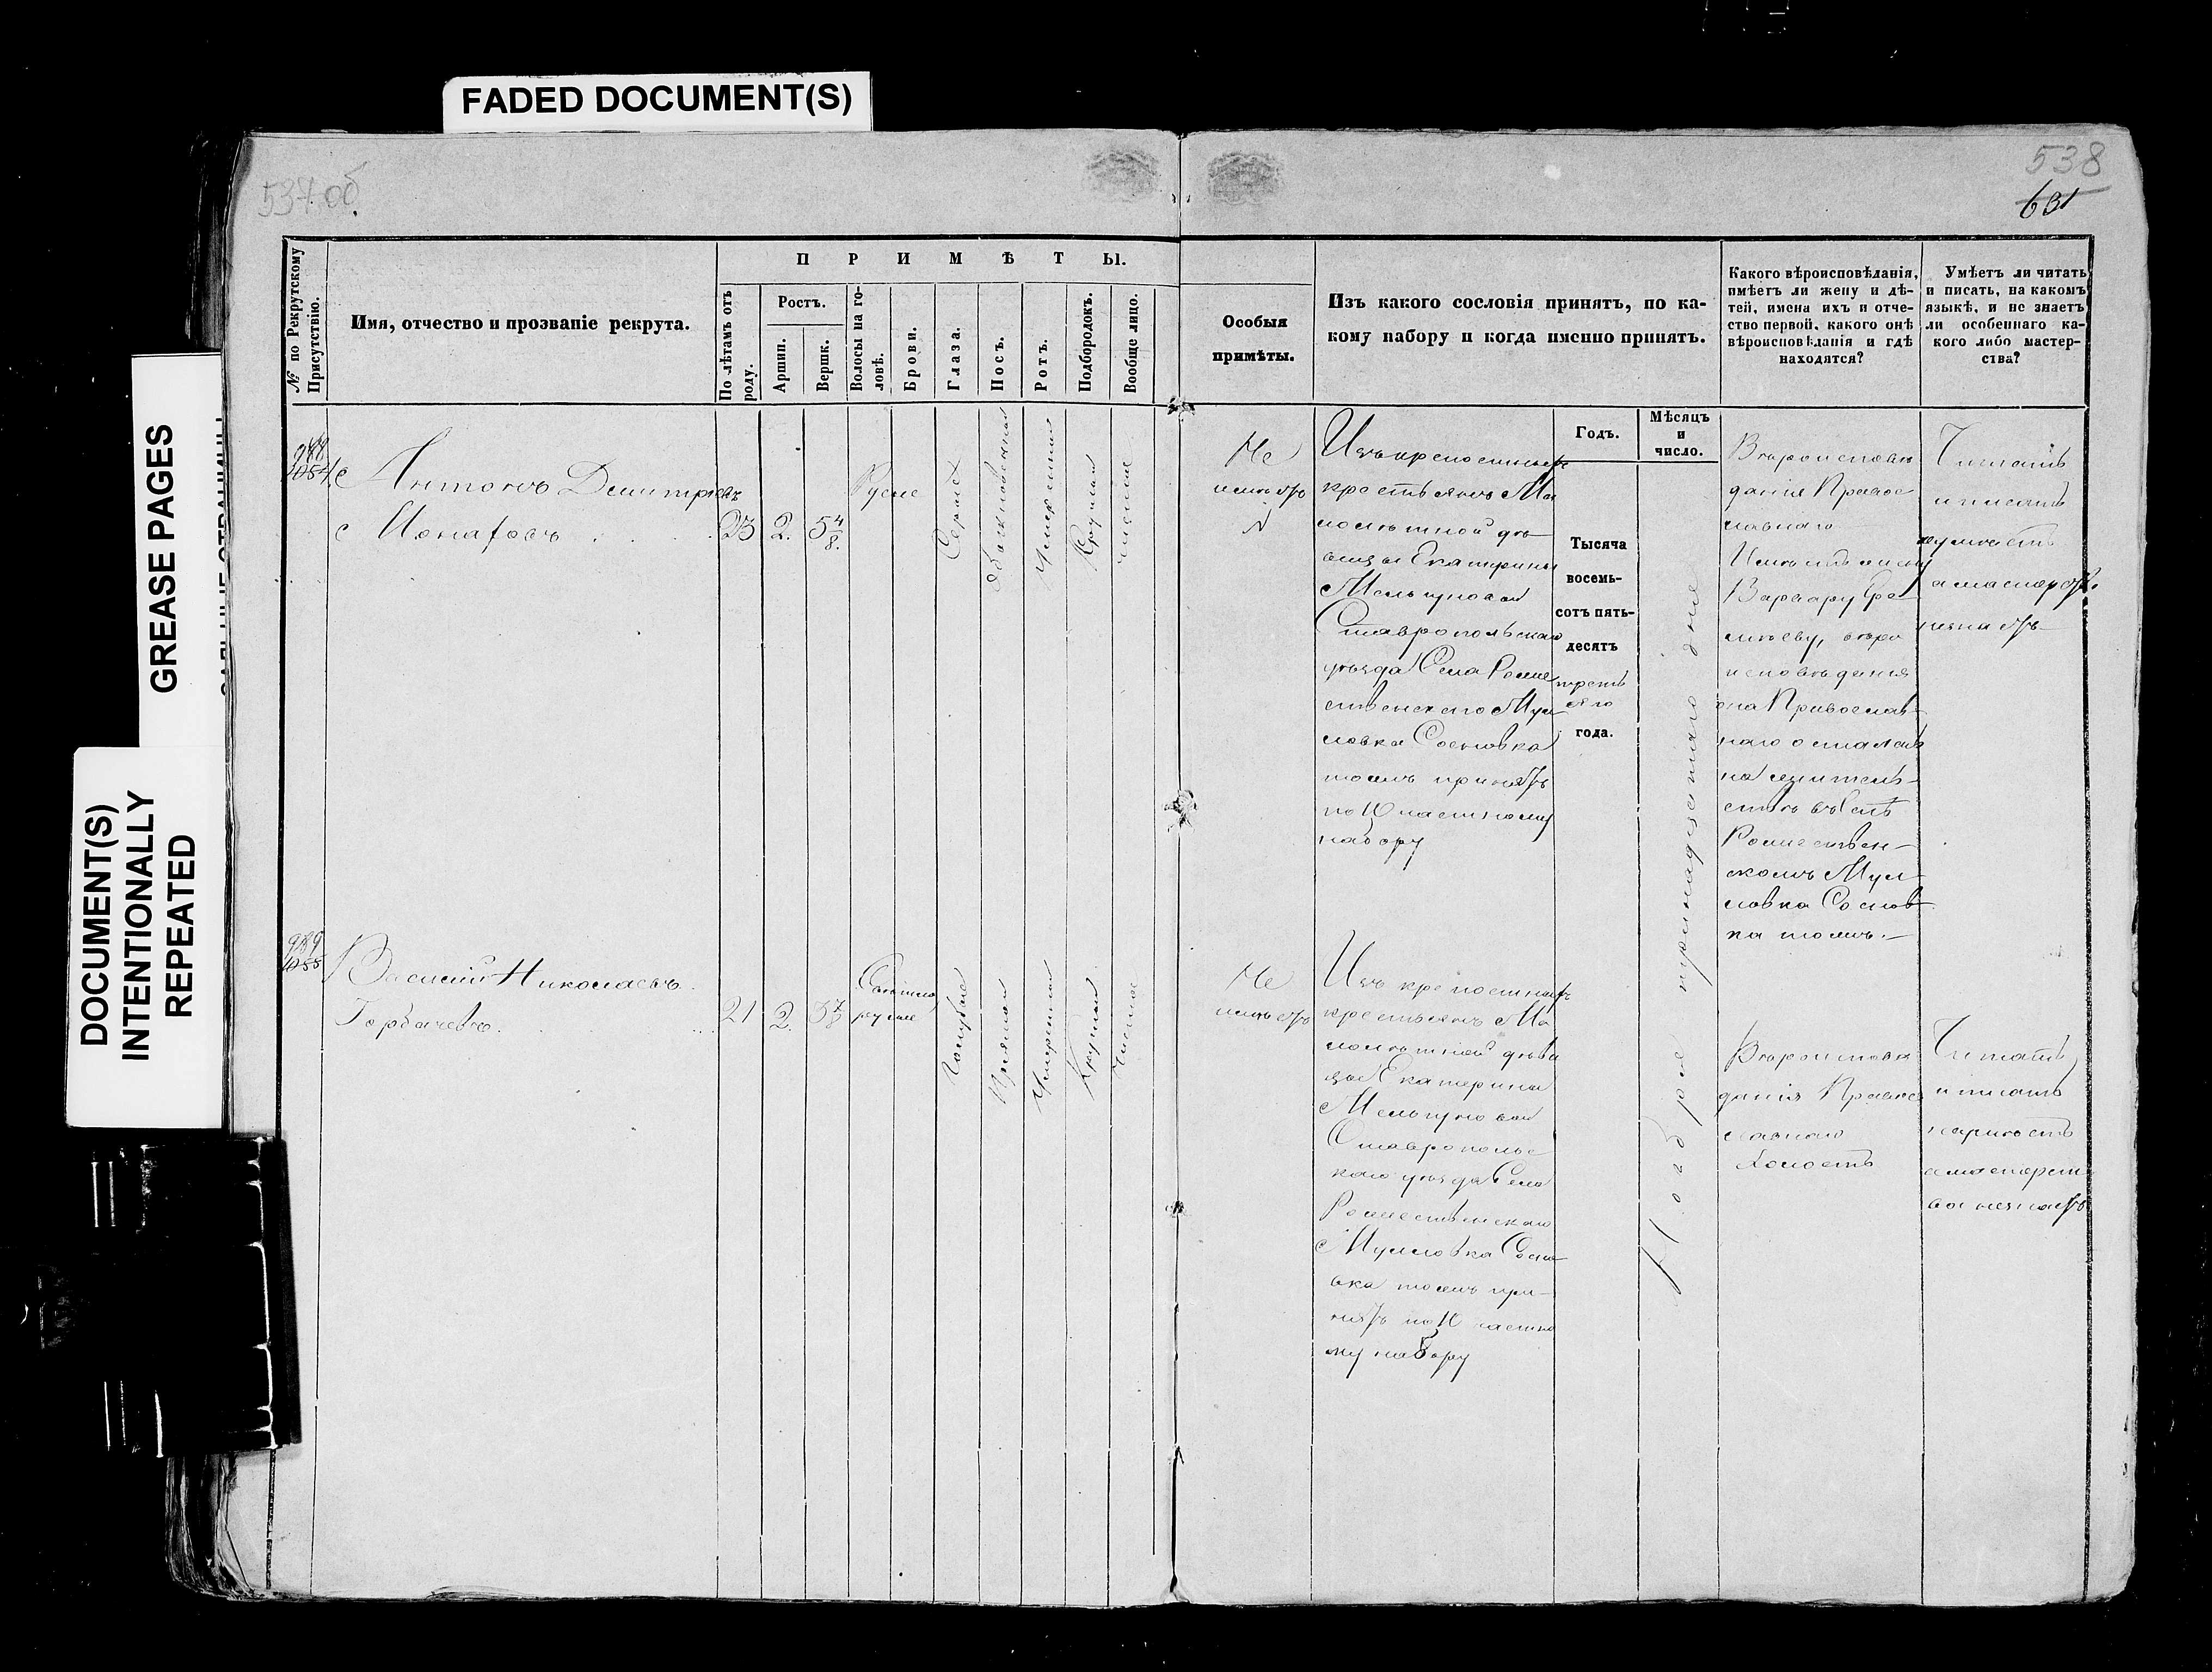 FADED DOCUMENT(S)
GREASE PAGES
DOCUMENT(S)
INTENTIONALLY
REPEATED
537.об.
538
631
№ по Рекрутскому
Присутствію.
Имя, отчество и прозваніе рекрута.
ПРИМѢТЫ.
По лѣтамъ отъ
роду.
Ростъ.
Аршин.
Вершк.
Волосы на го-
ловѣ.
Брови.
Глаза.
Носъ.
Ротъ.
Подбородокъ.
Вообще лицо.
Особыя
примѣты.
Изъ какого сословія принятъ, по ка-
кому набору и когда именно принятъ.
Какого вѣроисповѣданія,
имѣетъ ли жену и дѣ-
тей, имена ихъ и отче-
ство первой, какого онѣ
вѣроисповѣданія и гдѣ
находятся?
Умѣетъ ли читать
и писать, на какомъ
языкѣ, и не знаетъ
ли особеннаго ка-
кого либо мастер-
ства?
Годъ.
Мѣсяцъ
и
число.
988
1054
Антонъ Димитріевъ
23
2.
5 4/8.
Русые
Серые
Обыкновенный
Умеренный
Круглый
чистое
Не
имѣетъ
Изъ крепостныхъ
крестьянъ Ма
лолѣтной дѣ
вицы Екатерины
Мельгуновой
Ставропольскаго
уѣзда Села Рожде
ственского Мул
ловка Сосновка
тожъ принятъ
по 10 частному
набору
Тысяча
восемь-
сотъ пять-
десятъ
треть
яго
года.
Ноября тринадцатаго дня
Вѣроисповѣ
данія Правос
лавнаго
Варвару
вѣро
исповѣданія
она Православ-
наго
на житель-
ствѣ въ Селѣ
Рождествен-
скомъ Мул-
ловка Соснов-
ка тожъ.
Читать
и писать
неумѣетъ
а мастерств.
незнаетъ
989
1055
Василий Николаевъ
Горбачевъ.
21
2.
5 7/8
Светло
русые
Голубые
Прямой
Умеренный
Круглый
Чистое
Не
имѣетъ
Изъ крепостныхъ
крестьянъ Ма
лолѣтной дѣви
цы Екатерины
Мельгуновой
Ставропольс
каго уѣзда Села
Рождественскаго
Мулловка Сосно
вка тожъ при-
нятъ по 10 частно
му набору
Вѣроисповѣ
данія Правос
лавнаго
Холостъ
Читать
и писать
неумѣетъ
а мастерст
ва незнаетъ